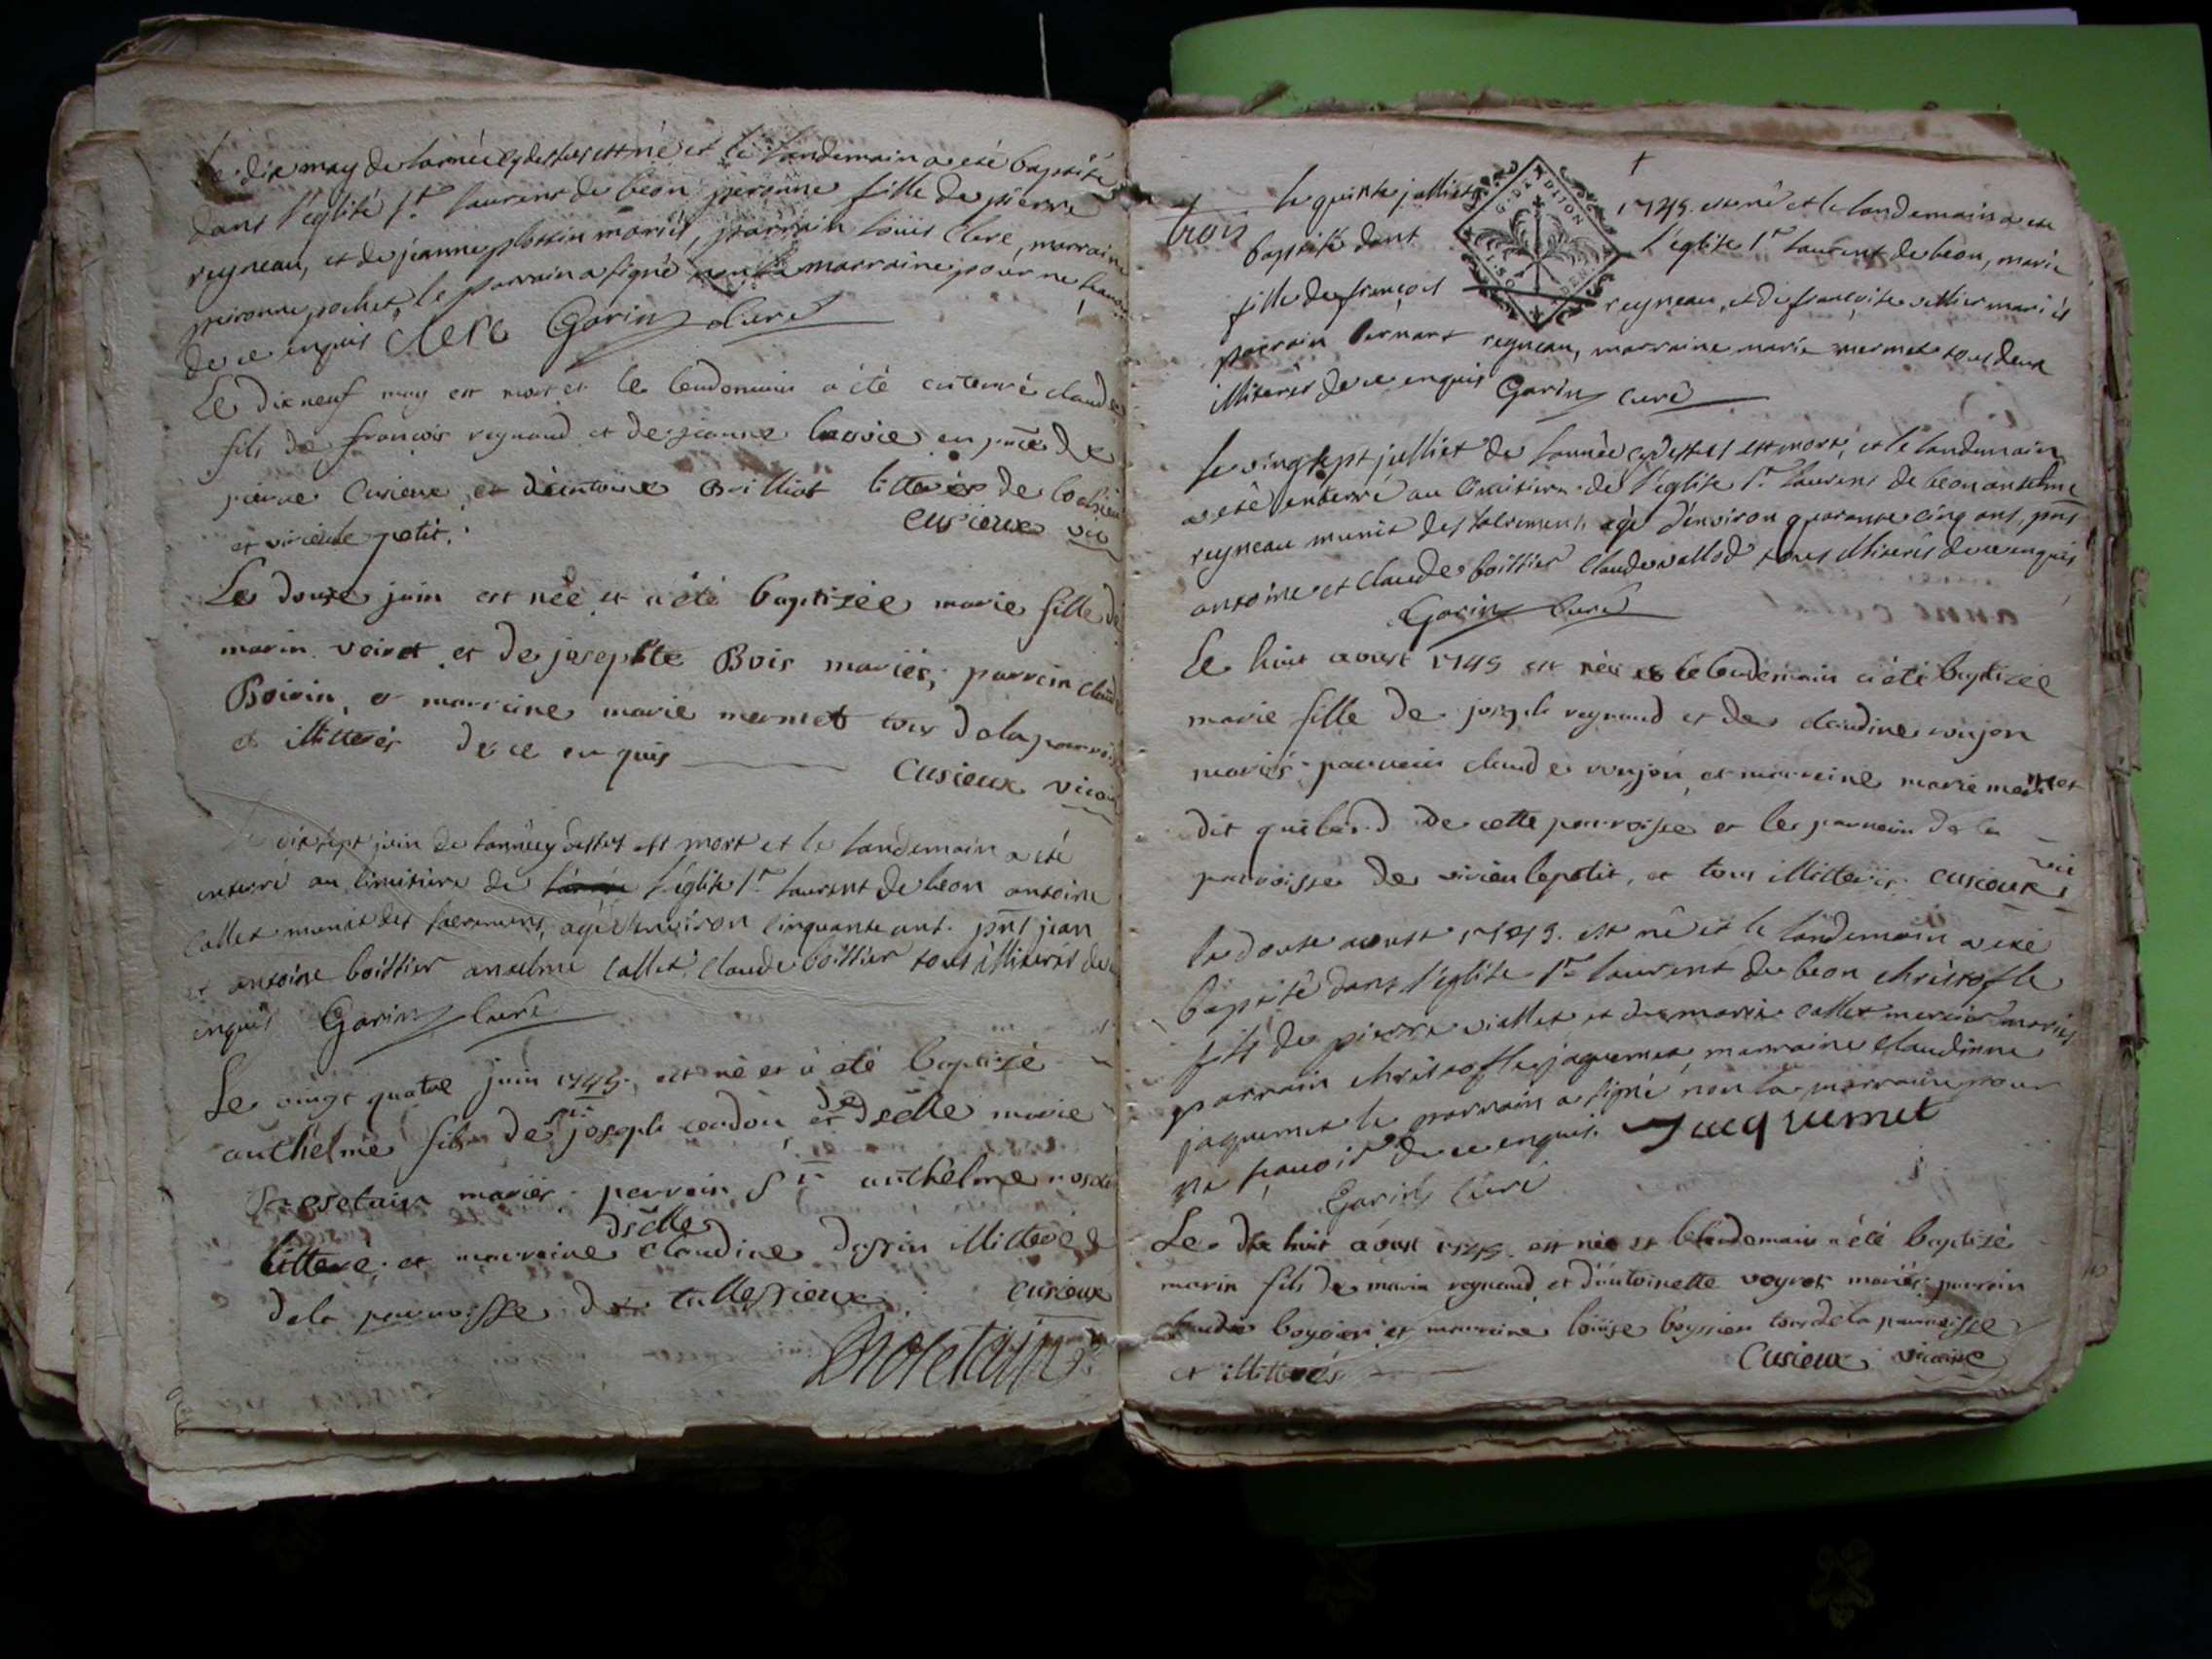 Le dix may de lannée cy dessus est né et le landemain a eté baptisé
dans l'eglise St laurens de beon peronne fille de pierre
reyneau, et de jeanne plossin mariés, parrain loüis Clerc, marraine
peironne pochet, le parrain a signé non la marraine pour ne scavoir
de ce enquis Clerc Gorin Curé
Le dixneuf may est mort et le lendemain a été enterré claude
fils de françois regnaud et de jeanne en pnce de
pierre Cusieux, et d'antoine Billiot litterés de
et virieule petit. Cusieux vic
Le douze juin est née et a été baptizée marie fille de
marin veiret et de josephte Bois mariés; parrein claude
Boivin, et marreine marie mermet tous dela parroisse
et illitterés de ce enquis Cusieux vicaire
Le dixsept juin de lannée cy dessus est mort et le landemain a eté
enterré au cimitiere de l'église St laurent de beon antoine
Callet munit des sacremens, agé denviron cinquante ans. pnt jean
et antoine boissier anselme Callet, claude boissier tous illiterés de ce
enquis Gorin Curé
Le vingt quatre juin 1749. est né et a été baptizé
anthelme fils de sr joseph et de dselle marie
mariés. parrein Sr anthelme
litteré; et marreine dselle Claudine dassin illitterée
dela parroisse de tallessieux. Cusieux
trois
le quinse julliet 1749. est né et le landemain a eté
baptisé dans l'église St laurent de beon, marie
G. D. DIJON
fille de françois reyneau, et de francoise vellier mariés
parrain bernart reyneau, marraine marie mermet tous deux
illiterés de ce enquis Gorin Curé
le vingt sept julliet de lannée cy dessus est mort, et le landemain
a eté enterré au cimitiere de l'église St laurens de beon anselme
reyneau munit des sacremens agé d'environ quarante cinq ans, pns
antoine et claude boissier Claude vallod tous illiterés de ce enquis
Gorin Curé
Le huit aoust 1749 est née et le lendemain a été baptizée
marie fille de joseph regnaud et de claudine roujon
mariés. parrein claude roujon, et marreine marie mermet
dit de cette parroisse et le parrein de la
parroisse de virieu le petit, et tous illitterés. Cusieux vic
le douse aoust 1749. est né et le landemain a eté
baptisé dans l'église St laurent de beon christofle
fils de pierre viallet et de marie callet mercier mariés
parrain christofle jaquemet, marraine claudinne
jaquemet le parrain a signé non la marraine pour
ne scavoir de ce enquis. Jacquemet
Gorin Curé
Le dix huit aoust 1749. est né et le lendemain a été baptizé
marin fils de marin regnaud, et d'antoinette veyret mariés; parrein
claude boysien et marreine loüise boyssien tous de la parroisse
et illitterés Cusieux vicaire